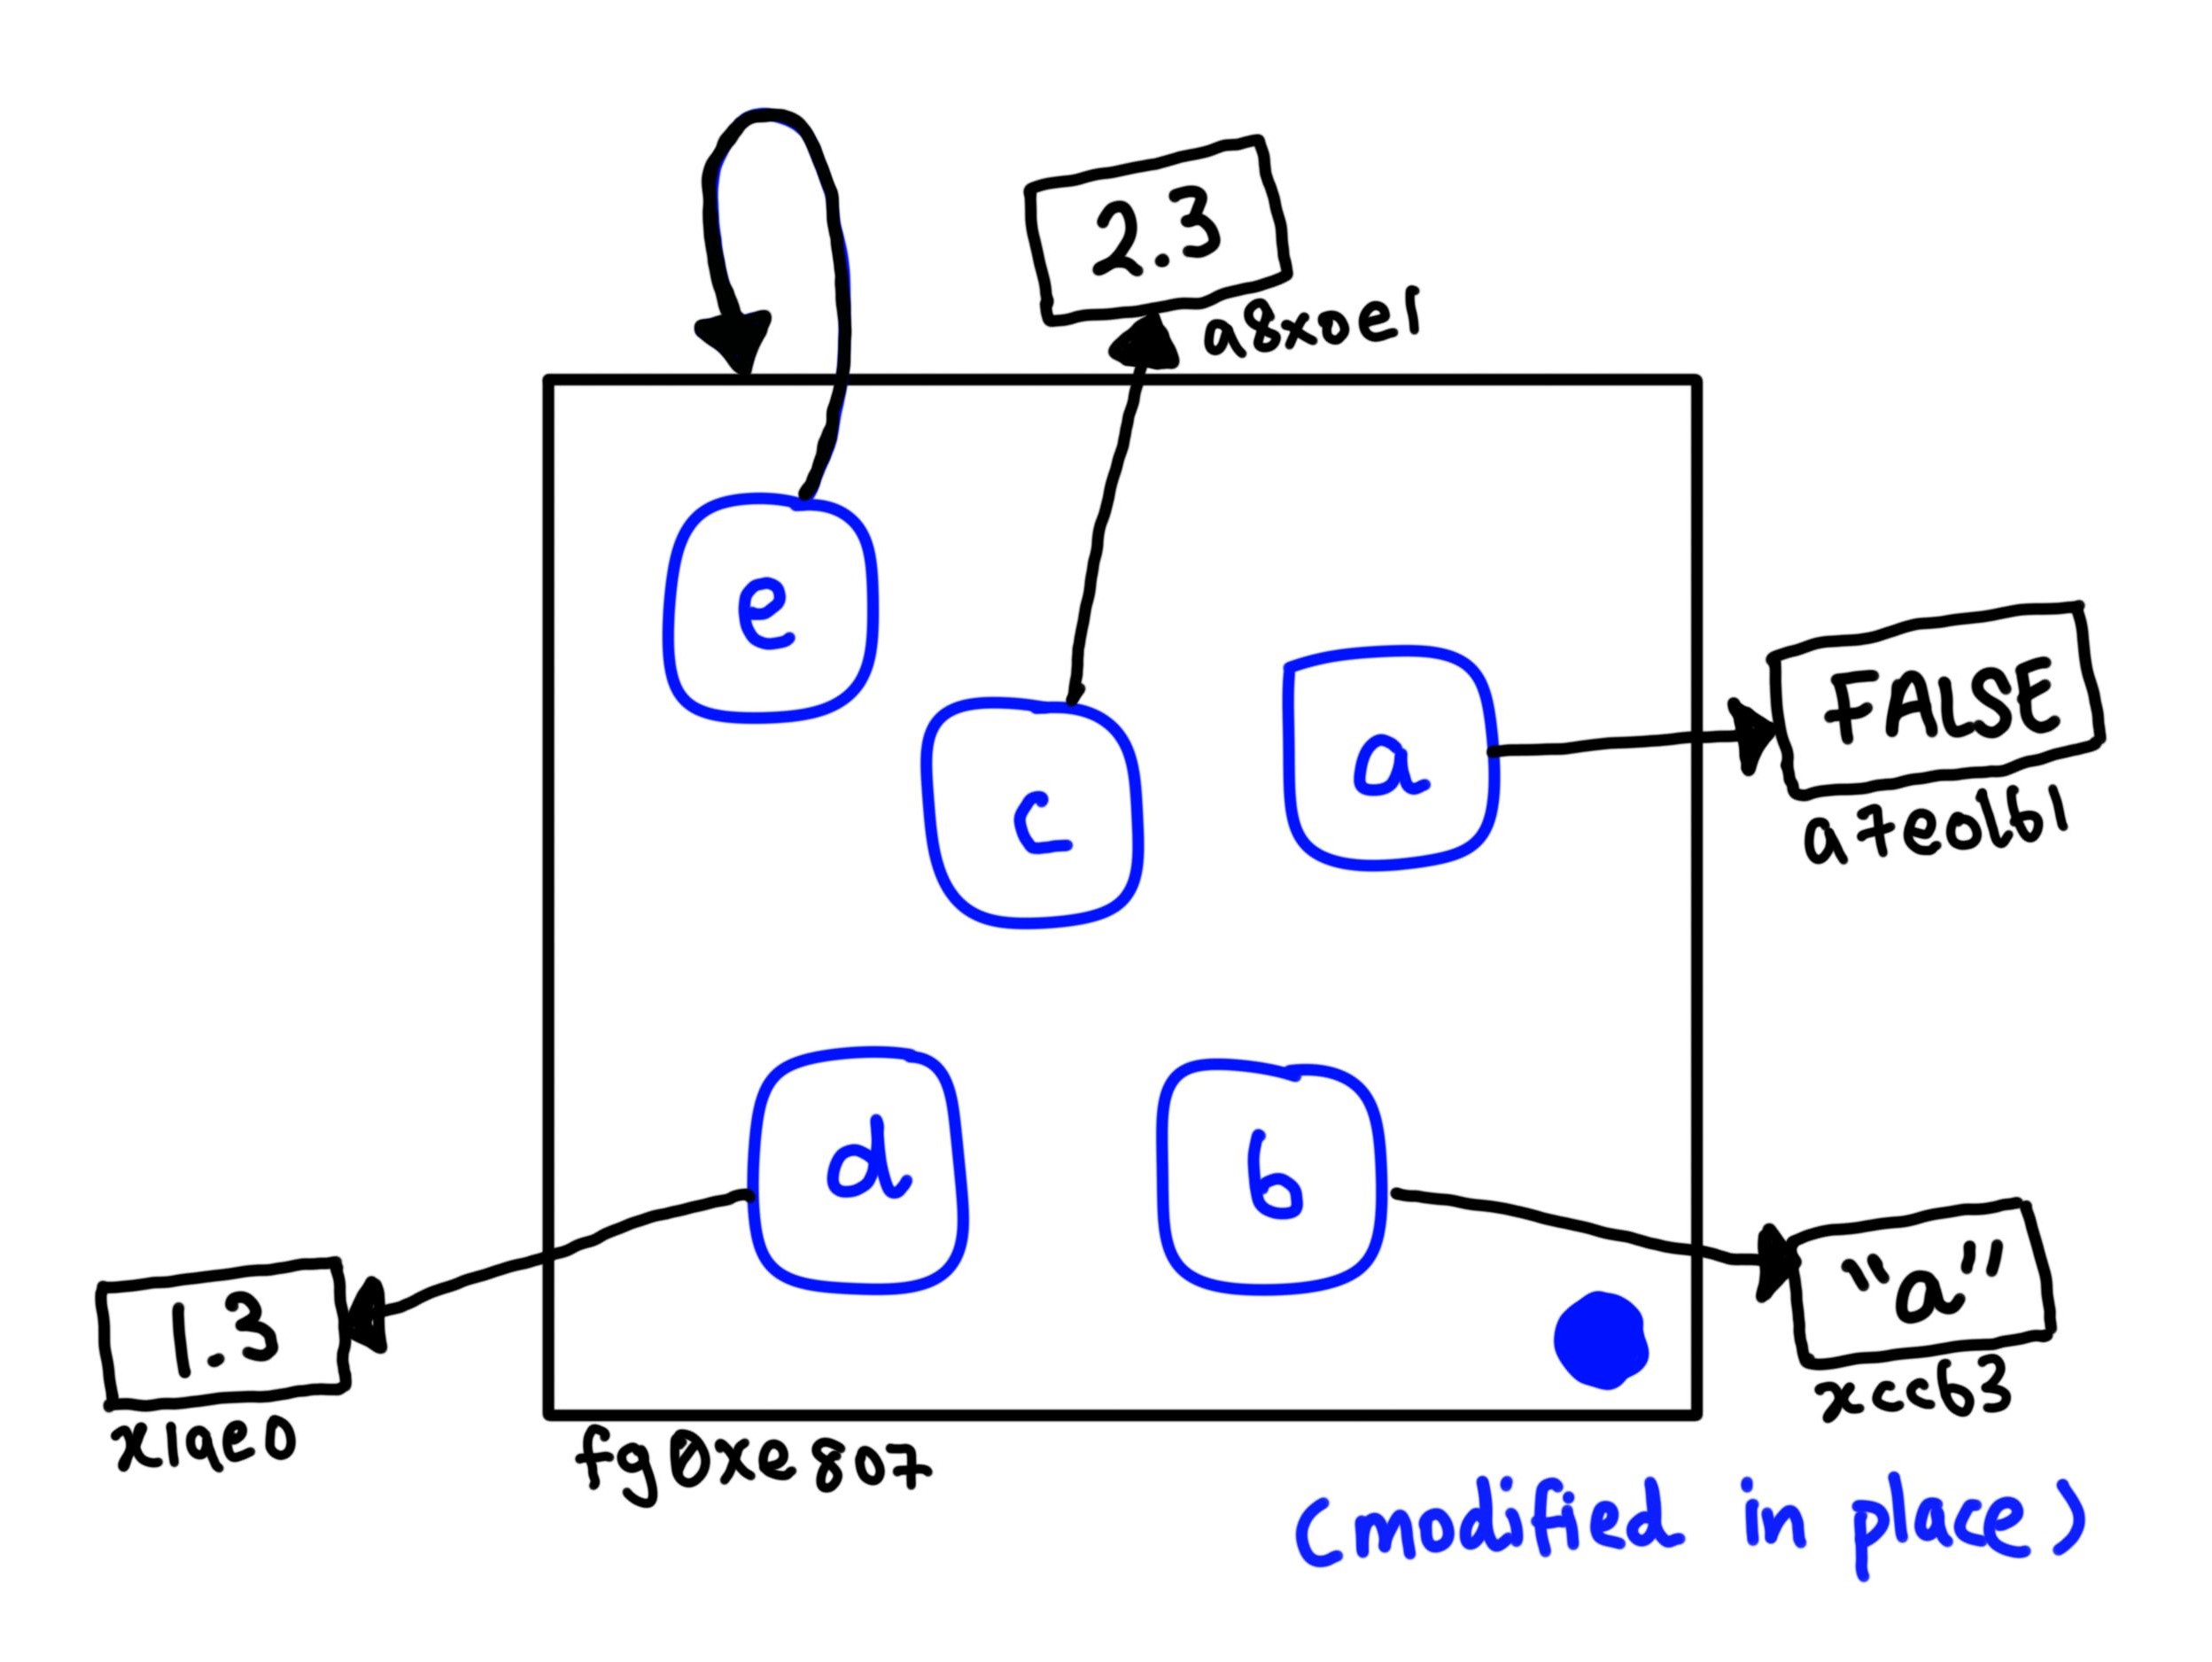 2.3
a8x0e1
e
c
a
FALSE
a7e01b1
d
b
1.3
x1qe0
"a"
xccb3
fg0xe807
(modified in place)